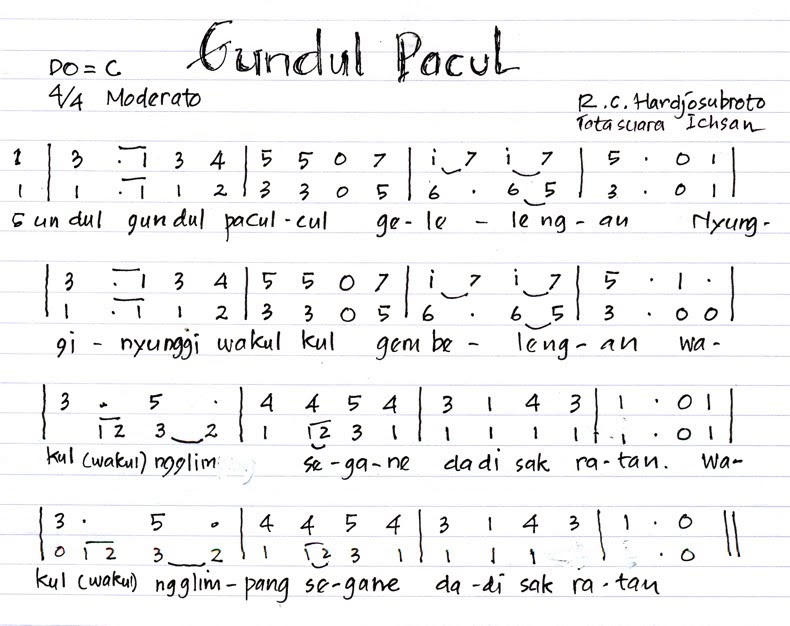 Gundul Pacul
DO = C
4/4 Moderato
R.C. Hardjosubroto
Tata suara Ichsan
1 | 3 .1 3 4 | 5 5 0 7 | i 7 i 7 | 5 . 0 1 |
1 | 1 .1 1 2 | 3 3 0 5 | 6 . 6 5 | 3 . 0 1 |
Gundul gundul pacul-cul ge-le - leng-an Nyung-
| 3 .1 3 4 | 5 5 0 7 | i 7 i 7 | 5 . 1 . |
| 1 .1 1 2 | 3 3 0 5 | 6 . 6 5 | 3 . 0 0 |
gi - nyunggi wakul kul gembe - leng-an wa-
| 3 . 5 . | 4 4 5 4 | 3 1 4 3 | 1 . 0 1 |
12 3 2 | 1 12 3 1 | 1 1 1 1 | 1 . 0 1 |
kul (wakul) ngglim se-ga-ne dadi sak ra-tan. Wa-
| 3 . 5 . | 4 4 5 4 | 3 1 4 3 | 1 . 0 ||
| 0 12 3 2 | 1 12 3 1 | 1 1 1 . 0 ||
kul (wakul) ngglim-pang se-gane da-di sak ra-tan